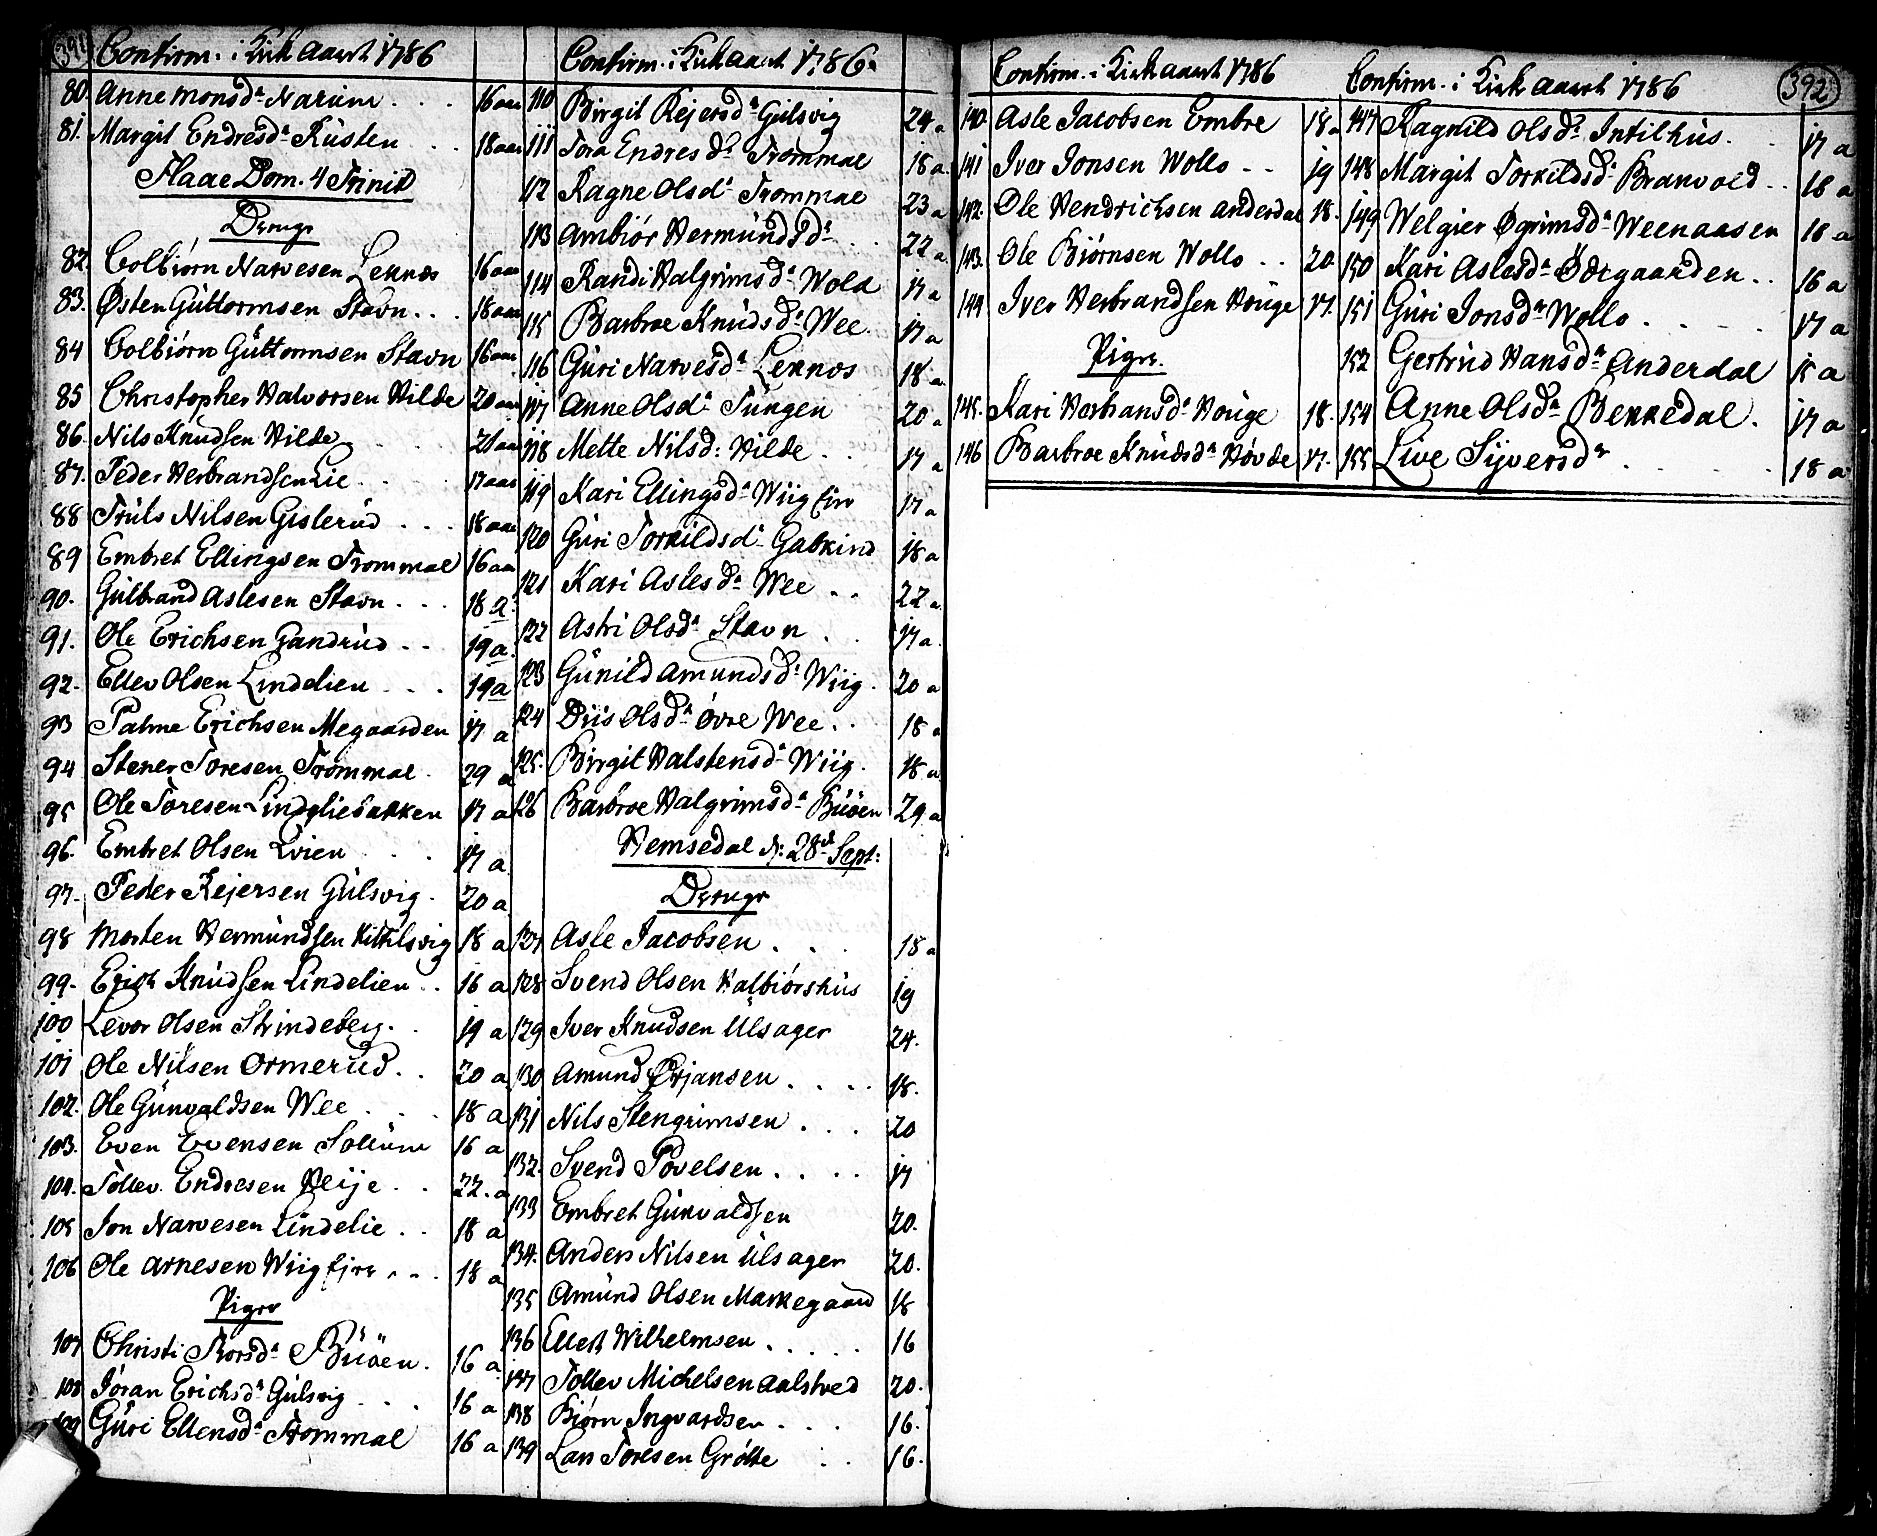 391
Confirm. i Kirk aaret 1786
80. Anne Monsd.r Narum . . . 16 aar
81. Margit Endresd.r Rusten . . . 18 aar
Flaae Dom. 4 Trinit
Drenge
82. Colbiørn Narvesen Leknes 16 aar
83. Østen Guttormsen Stavn . . . 18 aar
84 Colbiørn Guttormsen Stavn 16 aar
85 Christopher Halvorsen Hilde 20 aar
86. Nils Knudsen Hilde . . 21 aar
87. Peder Herbrandsen Lie . . . 17 aar
88 Truls Nilsen Gislerud . . . 18 aar
89 Embret Ellingsen Trommal 16 aar
90. Gulbrand Aslesen Stavn . . . 18 a.
91. Ole Erichsen Gandrud . . 19 a.
92. Ellev Olsen Lindelien . . . 19 a
93 Palme Erichsen Megaarden 17 a
94 Stener Toresen Trommal . 29 a
95 Ole Toresen Lindeliebakken 17 a
96. Embret Olsen Lvien . . . 17 a
97. Peder Rejersen Gulsvig . 20 a
98 Morten Hermundsen Kittilsvig 18 a
99. Erich Knudsen Lindelien . . 16 a
100 Levor Olsen Strindeberg . . 19 a
101 Ole Nilsen Ormerud . . 20 a
102. Ole Gunvaldsen Wee . . . 18 a
103. Even Evensen Solium 16 a
104. Tollev Endresen Heije . . 22. a
105 Jon Narvesen Lindelie . . 18 a
106 Ole Arnesen Wiigejre . . . 18 a
Piger
107 Christi Torsd.r Buøen . 16 a
108 Jøran Erichsd.r Gulsvig . . . 16 a
109 Guri Ellensd.r Trommal 16 a
Confirm. i Kirk aaret 1786.
110 Birgit Rejersd.r Gulsvig 24 a
111 Tora Endresd.r Trommal 18 a.
112 Ragne Olsd.r Trommal 23 a
113 Ambiør Hermundsd.r . . . 22 a
114 Randi Halgrimsd.r Wold 17 a
115 Barbroe Knudsd.r Wee . 17 a
116 Guri Narvesd.r Leknes 18 a
117 Anne Olsd.r Tungen 20 a
118 Mette Nilsd: Hilde . . 17 a
119 Kari Ellingsd.r Wiigejre 17 a
120 Guri Torkildsd.r Gabkind 18 a
121 Kari Aslesd.r Wee . . 22 a
122 Astri Olsd.r Stavn . . 17 a
123 Gunild Amundsd.r Wiig . 20 a
124 Diis Olsd.r Øvre Wee . . 18 a
125. Birgit Halstensd.r Wiig . 18 a
126 Barbroe Halgrimsd.r Buøen 29 a
Hemsedal d: 28de Sept:
Drenge
127 Asle Jacobsen . . . 18 a
128 Svend Olsen Halbiørshus 19
129 Iver Knudsen Ulsager 24.
130 Amund Ørjansen . . . . 18.
131 Nils Stengrimsen . . . 20
132. Svend Povelsen . . . . 17
133 Embret Gunvaldsen 20.
134. Anders Nilsen Ulsager 20.
135 Amund Olsen Markegaard 18
136 Ellert Wilhelmsen . . . . . 16
137 Tollev Michelsen Aalstved 20.
138 Biørn Ingvardsen . . . . 16.
139 Lars Toresen Grøtte . . 16.
Confirm. i Kirk aaret 1786
140. Asle Jacobsen Embre 18 a
141 Iver Jonsen Wollo . . 19
142. Ole Hendrichsen Anderdal 18.
143. Ole Biørnsen Wollo . . 20
144 Iver Herbrandsen Houge 17.
Piger.
145. Kari Herbransd.r Houge 18.
146 Barbroe Knudsd.r Høvde 17.
Confirm. i Kirk aaret 1786
392
147 Ragnild Olsd.r Intilhus . . 17 a
148 Margit Torkildsd.r Branvold . . 18 a
149 Welgier Øgrimsd.r Weenaasen 18 a
150 Kari Aslesd.r Ødegaarden . . 16 a
151 Guri Jonsd.r Wollo . . . . 17 a
152 Gertrud Hansd.r Anderdal 15 a
154 Anne Olsd.r Bekkedal . 17 a
155 Live Sijversd.r . . . . 18 a